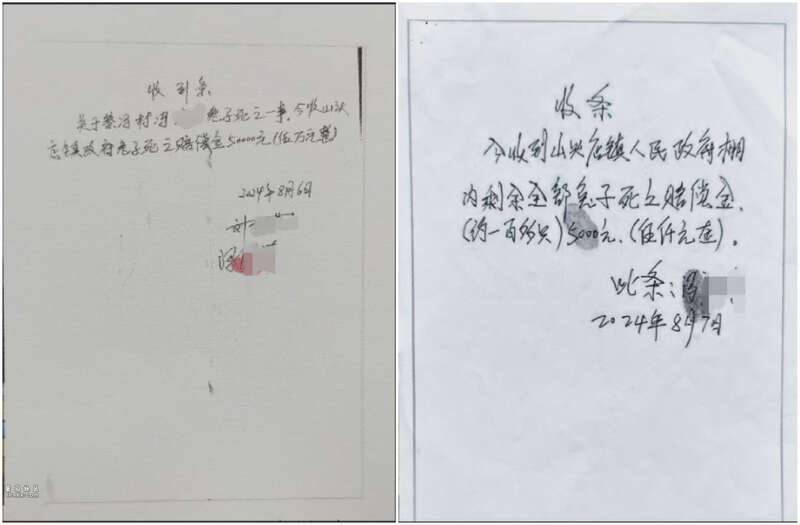 收到条
关于蔡冯村冯 兔子死亡一事,今收山头
店镇政府兔子死亡赔偿金50000元(伍万元整)
2024年8月6日
刘
收条
今收到山头店镇人民政府棚
内剩余全部兔子死亡赔偿金,
(约一百多只)5000元,(伍仟元整)。
此条:
2024年8月7日